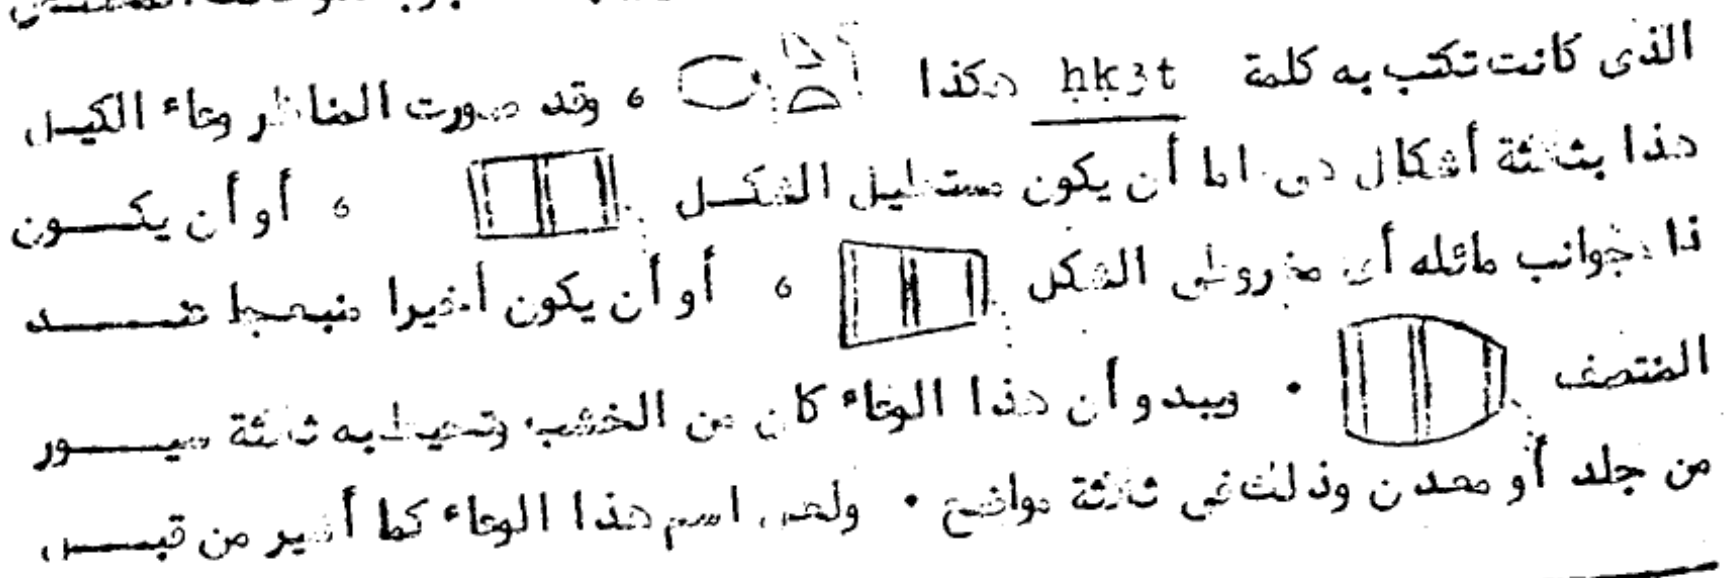 الذى كانت تكتب به كلمة hkꜣt هكذا ، وقد صورت المناظر وعاء الكيل
هذا بثلاثة أشكال هى اما أن يكون مستطيل الشكــل ، أو أن يكـــون
ذا جوانب مائله أى مخروطى الشكل ، أو أن يكون أخيرا منبعجا عنـــد
المنتصف . ويبدو أن هذا الوعاء كان من الخشب وتحيط به ثلاثة سيـــور
من جلد أو معدن وذلك فى ثلاثة مواضع . ولعل اسم هذا الوعاء كما أشير من قبـــل